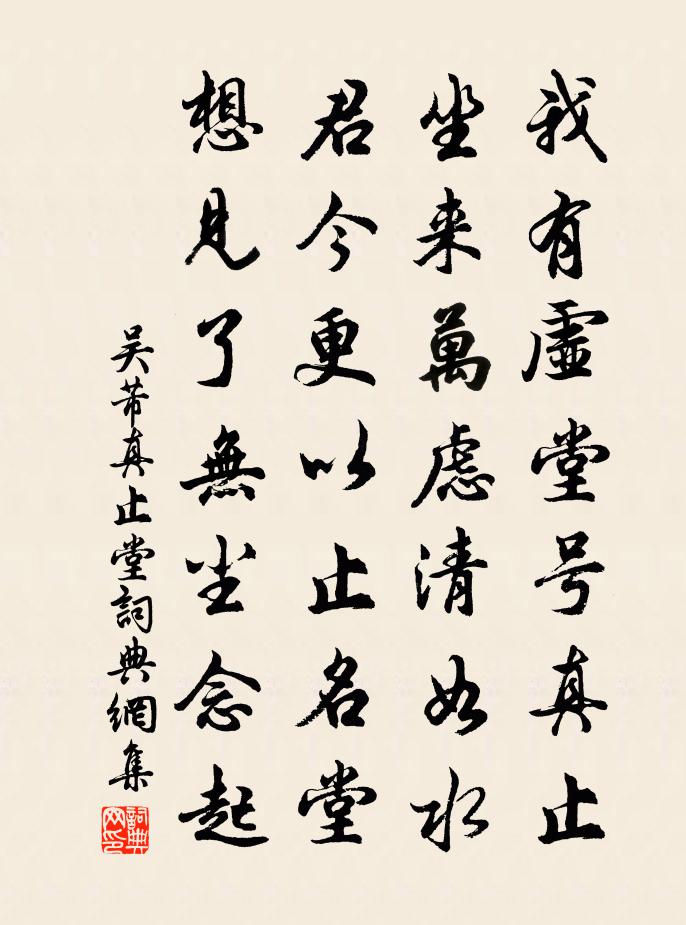 我有虛堂号真止
坐来萬慮清如水
君今更以止名堂
想見了無尘念起
吴芾真止堂詞典網集
詞典
网印